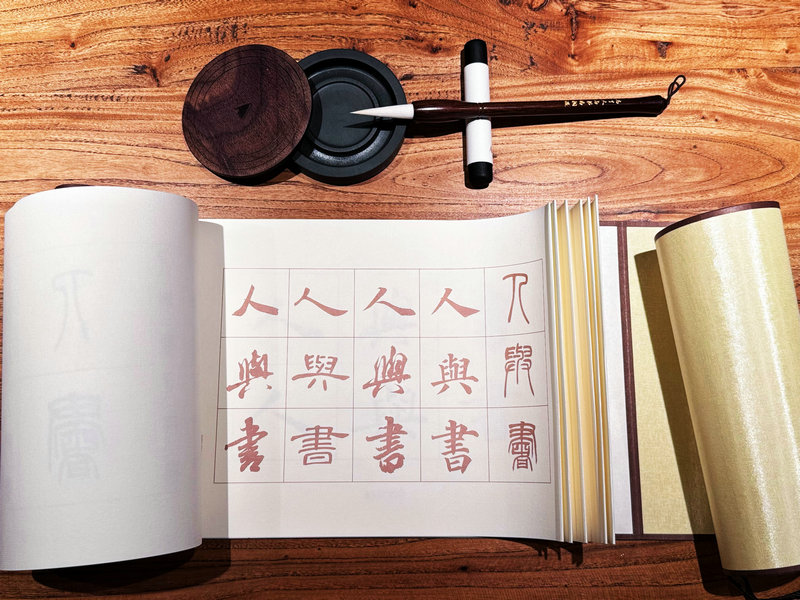 人與書
人與書
人與書
人與書
人與書